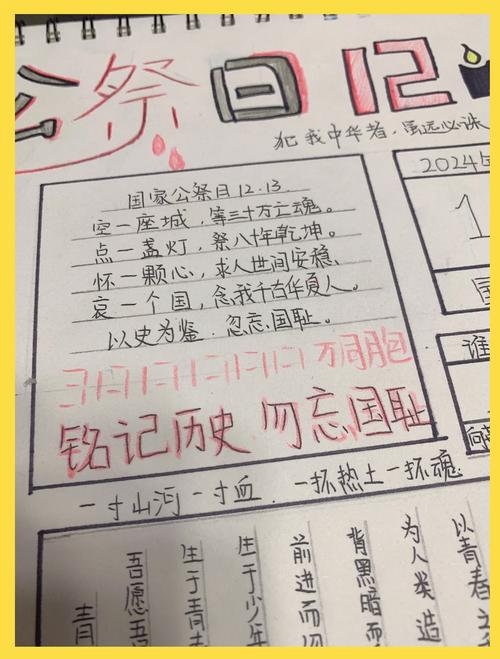 公祭日 12
犯我中华者,虽远必诛
国家公祭日12.13
空一座城,等三十万亡魂。
点一盏灯,祭八十年乾坤。
怀一颗心,求人世间安稳、
哀一个国,念我千古华夏人。
以史为鉴.忽忘国耻。
万同胞
铭记历史 勿忘国耻
2024年
1
国
谁
向
一寸山河一寸血.一抔热土一抔魂
以青春
为人类造
背黑暗而
前进而
生于少年
生于青
吾愿吾
青